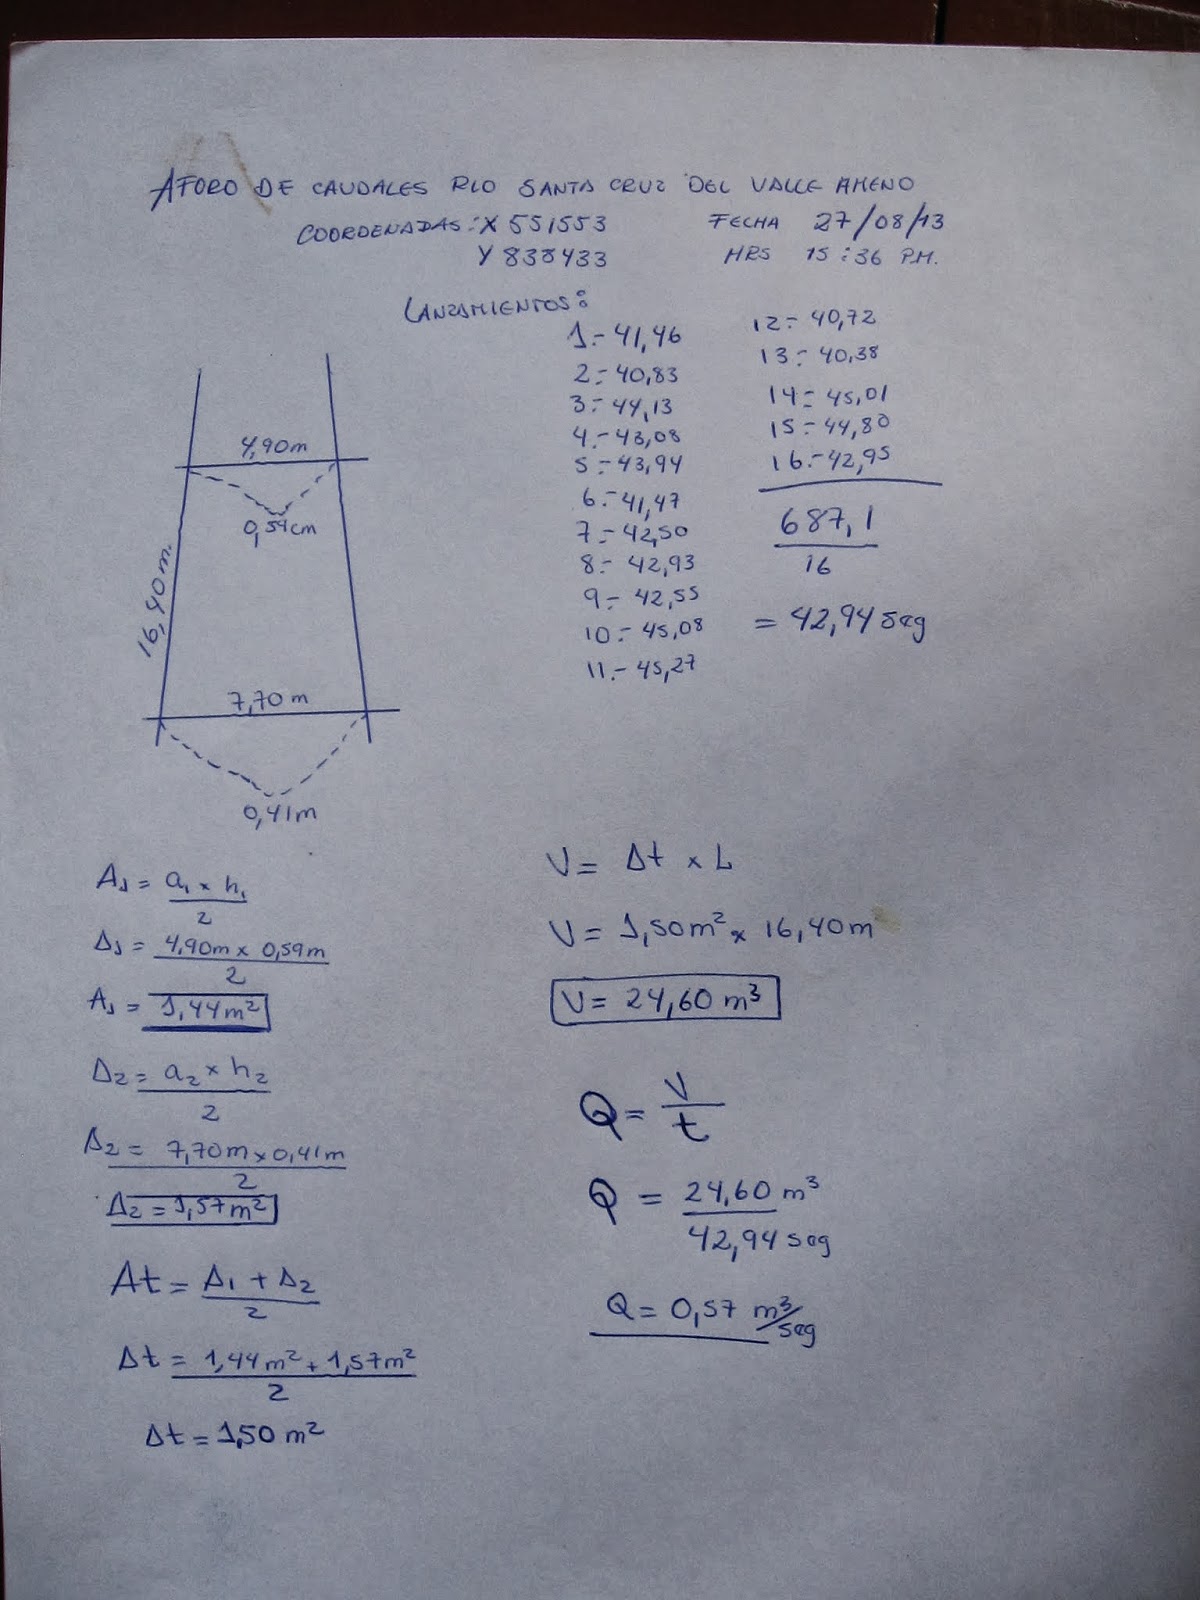 AFORO DE CAUDALES RIO SANTA CRUZ DEL VALLE AMENO
COORDENADAS: X 551553
Y 838433
FECHA 27/08/13
HRS 15:36 P.M.
LANZAMIENTOS:
1.- 41,46
2.- 40,83
3.- 44,13
4.- 43,08
5.- 43,94
6.- 41,47
7.- 42,50
8.- 42,93
9.- 42,55
10.- 45,08
11.- 45,27
12.- 40,72
13.- 40,38
14.- 45,01
15.- 44,80
16.- 42,95
687,1
16
= 42,94 seg
4,90m
0,59cm
16,40m.
7,70m
0,41m
A1 = a1 x h1
2
A1 = 4,90m x 0,59m
2
A1 = 1,44m²
A2 = a2 x h2
2
A2 = 7,70m x 0,41m
2
A2 = 1,57m²
At = A1 + A2
2
At = 1,44m² + 1,57m²
2
At = 1,50 m²
V = At x L
V = 1,50m² x 16,40m
V = 24,60 m³
Q = V
t
Q = 24,60 m³
42,94 seg
Q = 0,57 m³/seg